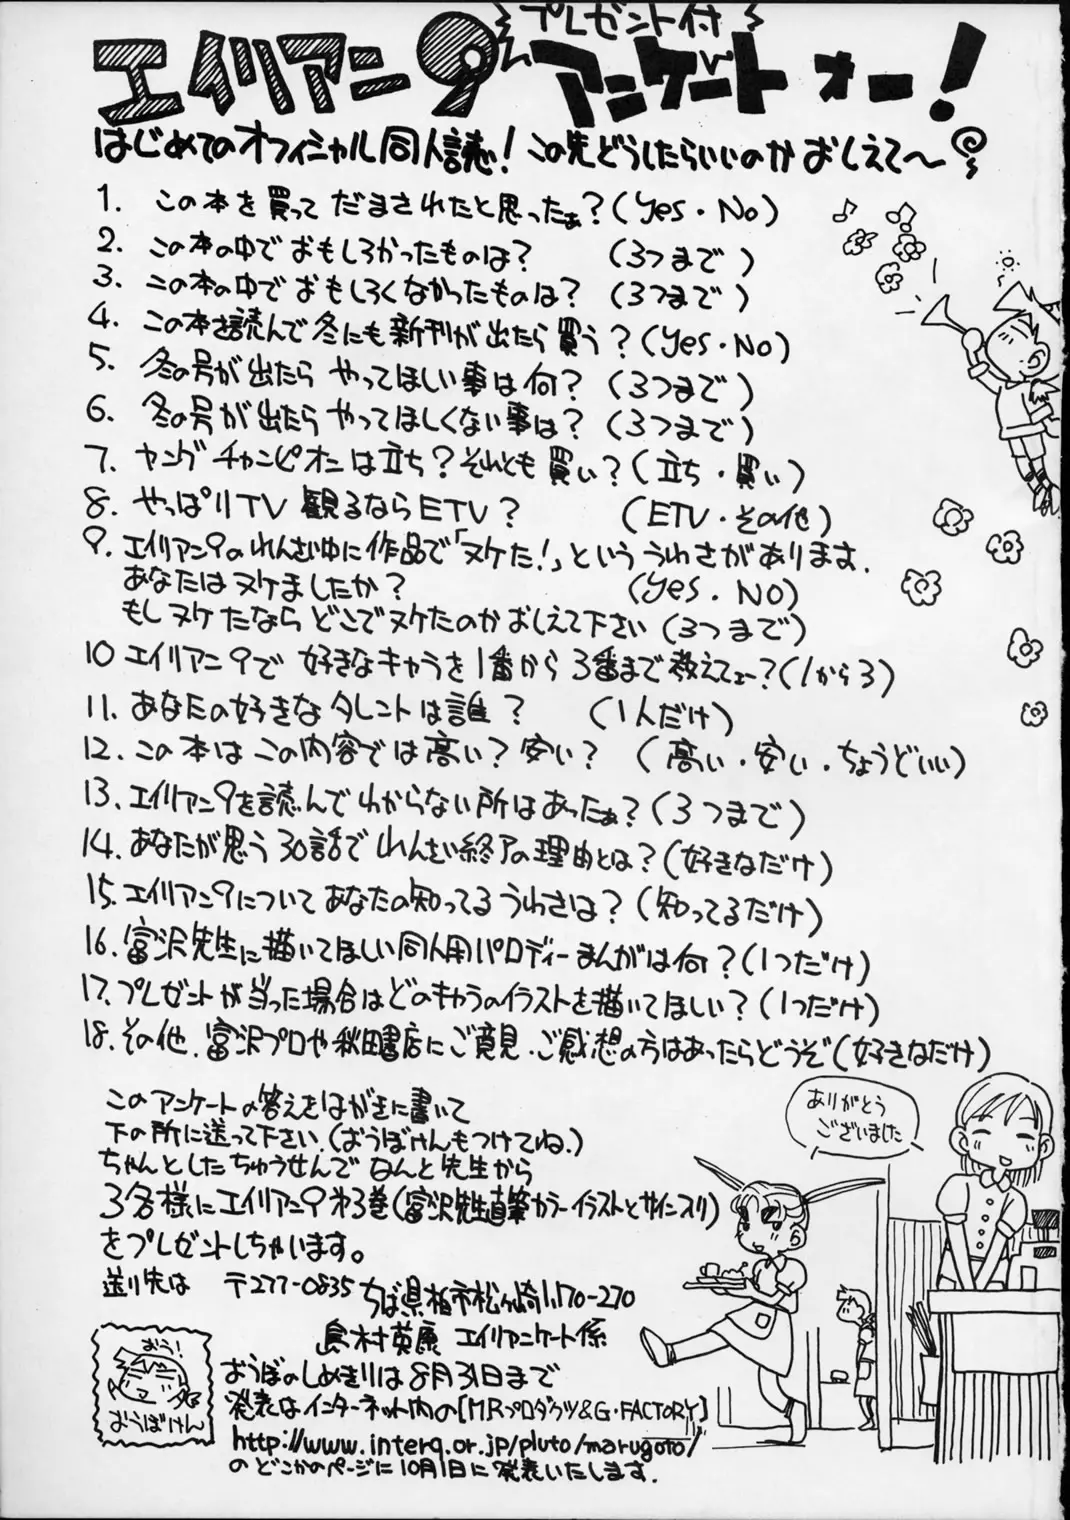 プレゼント付
エイリアン9 アンケートォー!
はじめてのオフィシャル同人誌! この先どうしたらいいのか おしえて〜
1. この本を買って だまされたと思ったぁ?(Yes・No)
2. この本の中で おもしろかったものは? (3つまで)
3. この本の中で おもしろくなかったものは? (3つまで)
4. この本を読んで冬にも新刊が出たら買う?(Yes・No)
5. 冬の号が出たら やってほしい事は何? (3つまで)
6. 冬の号が出たら やってほしくない事は? (3つまで)
7. ヤングチャンピオンは立ち?それとも買い?(立ち・買い)
8. やっぱりTV 観るならETV? (ETV・その他)
9. エイリアン9のれんさい中に作品で「ヌケた!」といううわさがあります.
あなたはヌケましたか? (Yes.NO)
もしヌケたなら どこでヌケたのか おしえて下さい(3つまで)
10 エイリアン9で 好きなキャラを1番から3番まで教えてェー?(1から3)
11. あなたの好きなタレントは誰? (1人だけ)
12. この本は この内容では高い?安い? (高い・安い・ちょうどいい)
13. エイリアン9を読んでわからない所はあったぁ?(3つまで)
14. あなたが思う30話でれんさい終了の理由とは?(好きなだけ)
15. エイリアン9についてあなたの知ってるうわさは?(知ってるだけ)
16. 富沢先生に描いてほしい同人用パロディーまんがは何?(1つだけ)
17. プレゼントが当った場合はどのキャラのイラストを描いてほしい?(1つだけ)
18. その他.富沢プロや秋田書店にご意見・ご感想の方はあったらどうぞ(好きなだけ)
このアンケートの答えをはがきに書いて
下の所に送って下さい.(おうぼけんもつけてね.)
ちゃんとしたちゅうせんで なんと先生から
3名様にエイリアン9 第3巻(富沢先生直筆カラーイラストとサイン入り)
をプレゼントしちゃいます。
送り先は 〒277-0835 ちば県柏市松ヶ崎1170-270
島村英康 エイリアンケート係
おうぼのしめきりは8月31日まで
発表はインターネット内の[MRプロダクツ&G・FACTORY]
http://www.interq.or.jp/pluto/marugoto/
のどこかのページに10月1日に発表いたします.
おう!
おうぼけん
ありがとう
ございました